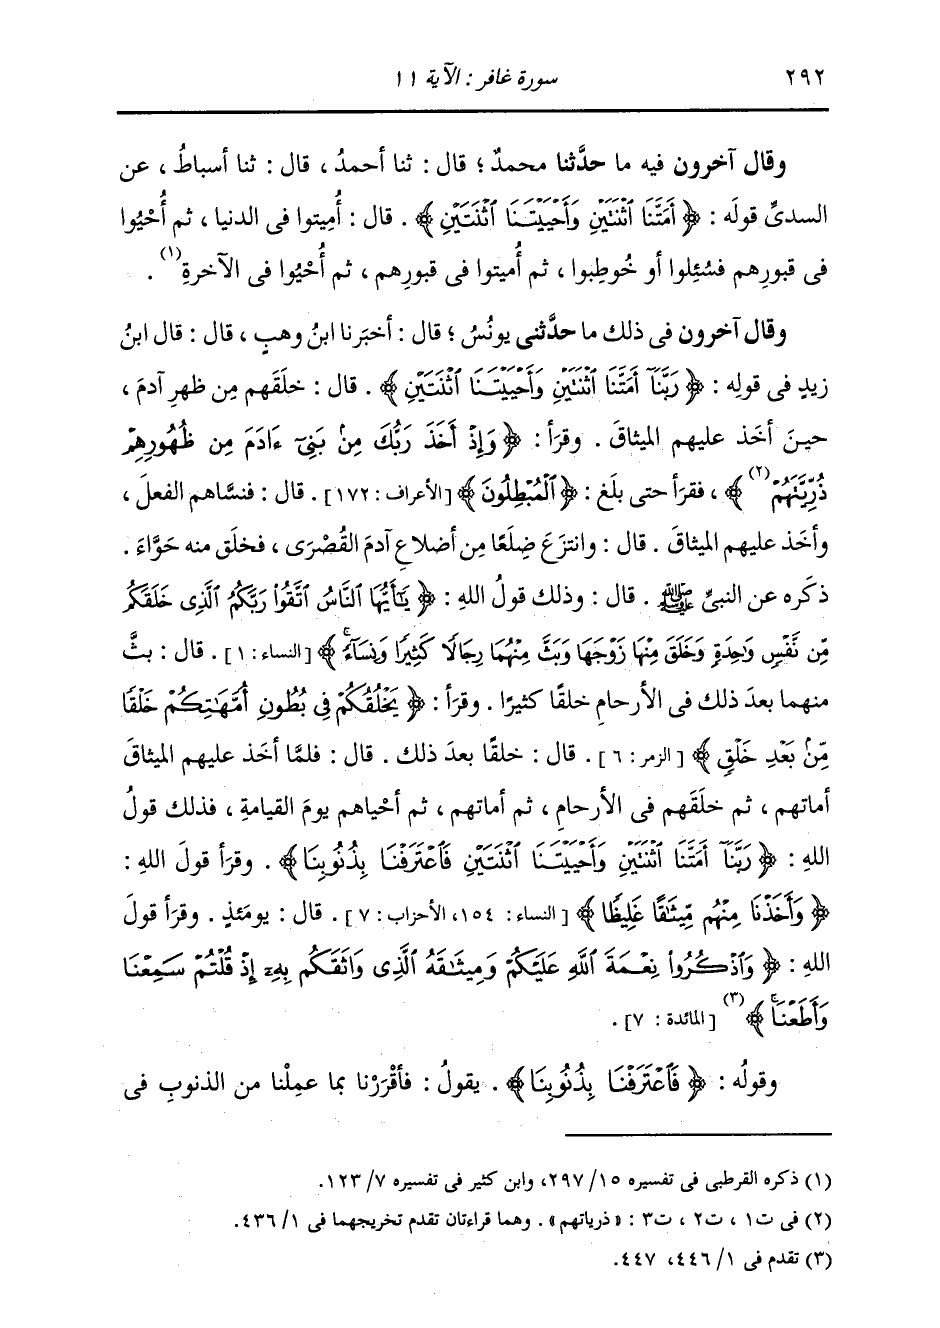 ٢٩٢ سورة غافر : الآية ١١
وقال آخرون فيه ما حدَّثنا محمدٌ ؛ قال : ثنا أحمدُ ، قال : ثنا أسباطُ ، عن
السدىِّ قولَه : ﴿ أَمَتَّنَا اثْنَتَيْنِ وَأَحْيَيْتَنَا اثْنَتَيْنِ ﴾ . قال : أُمِيتوا فى الدنيا ، ثم أُحْيُوا
فى قبورِهم فسُئِلوا أو خُوطِبوا ، ثم أُميتوا فى قبورِهم ، ثم أُحْيُوا فى الآخرةِ (١) .
وقال آخرون فى ذلك ما حدَّثنى يونُسُ ؛ قال : أخبَرنا ابنُ وهبٍ ، قال : قال ابنُ
زيدٍ فى قولِه : ﴿ رَبَّنَآ أَمَتَّنَا ٱثْنَتَيْنِ وَأَحْيَيْتَنَا ٱثْنَتَيْنِ ﴾ . قال : خلَقَهم مِن ظهرِ آدمَ ،
حينَ أخَذ عليهم الميثاقَ . وقرَأ : ﴿ وَإِذْ أَخَذَ رَبُّكَ مِنۢ بَنِىٓ ءَادَمَ مِن ظُهُورِهِمْ
ذُرِّيَّتَهُمْ (٢) ﴾ ، فقرَأ حتى بلَغ : ﴿ ٱلْمُبْطِلُونَ ﴾ [الأعراف : ١٧٢] . قال : فنسَّاهم الفعلَ ،
وأخَذ عليهم الميثاقَ . قال : وانتزَعَ ضِلَعًا مِن أضلاعِ آدمَ القُصْرَى ، فخلَق منه حَوَّاءَ .
ذكَره عن النبىِّ ﷺ . قال : وذلك قولُ اللهِ : ﴿ يَـٰٓأَيُّهَا ٱلنَّاسُ ٱتَّقُوا۟ رَبَّكُمُ ٱلَّذِى خَلَقَكُم
مِّن نَّفْسٍ وَٰحِدَةٍ وَخَلَقَ مِنْهَا زَوْجَهَا وَبَثَّ مِنْهُمَا رِجَالًا كَثِيرًا وَنِسَآءً ۚ ﴾ [النساء : ١] . قال : بثَّ
منهما بعدَ ذلك فى الأرحامِ خلقًا كثيرًا . وقرَأ : ﴿ يَخْلُقُكُمْ فِى بُطُونِ أُمَّهَـٰتِكُمْ خَلْقًا
مِّنۢ بَعْدِ خَلْقٍ ﴾ [الزمر : ٦] . قال : خلقًا بعدَ ذلك . قال : فلمَّا أخَذ عليهم الميثاقَ
أماتهم ، ثم خلَقَهم فى الأرحامِ ، ثم أماتهم ، ثم أحْياهم يومَ القيامةِ ، فذلك قولُ
اللهِ : ﴿ رَبَّنَآ أَمَتَّنَا ٱثْنَتَيْنِ وَأَحْيَيْتَنَا ٱثْنَتَيْنِ فَٱعْتَرَفْنَا بِذُنُوبِنَا ﴾ . وقرَأ قولَ اللهِ :
﴿ وَأَخَذْنَا مِنْهُم مِّيثَـٰقًا غَلِيظًا ﴾ [النساء : ١٥٤، الأحزاب : ٧] . قال : يومَئذٍ . وقرَأ قولَ
اللهِ : ﴿ وَٱذْكُرُوا۟ نِعْمَةَ ٱللَّهِ عَلَيْكُمْ وَمِيثَـٰقَهُ ٱلَّذِى وَاثَقَكُم بِهِۦٓ إِذْ قُلْتُمْ سَمِعْنَا
وَأَطَعْنَا ۖ ﴾ (٣) [المائدة : ٧] .
وقولُه : ﴿ فَٱعْتَرَفْنَا بِذُنُوبِنَا ﴾ . يقولُ : فأقْرَرْنا بما عمِلْنا من الذنوبِ فى
(١) ذكره القرطبى فى تفسيره ١٥/ ٢٩٧، وابن كثير فى تفسيره ٧/ ١٢٣.
(٢) فى ت١ ، ت٢ ، ت٣ : «ذرياتهم» . وهما قراءتان تقدم تخريجهما فى ١/ ٤٣٦.
(٣) تقدم فى ١/ ٤٤٦، ٤٤٧.